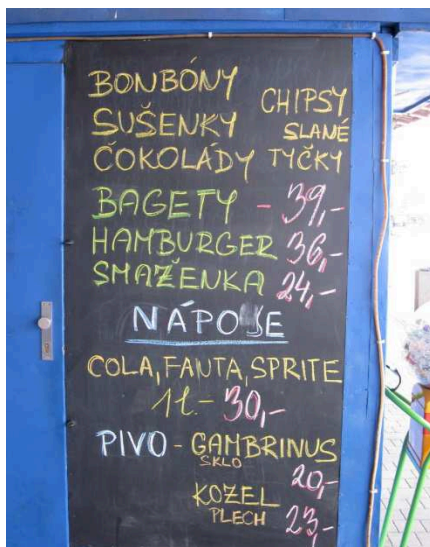 BONBÓNY
SUŠENKY
ČOKOLÁDY
CHIPSY
SLANÉ
TYČKY
BAGETY - 39,-
HAMBURGER 36,-
SMAŽENKA 24,-
NÁPOJE
COLA, FANTA, SPRITE
1l.- 30,-
PIVO - GAMBRINUS
SKLO 20,-
KOZEL
PLECH 23,-